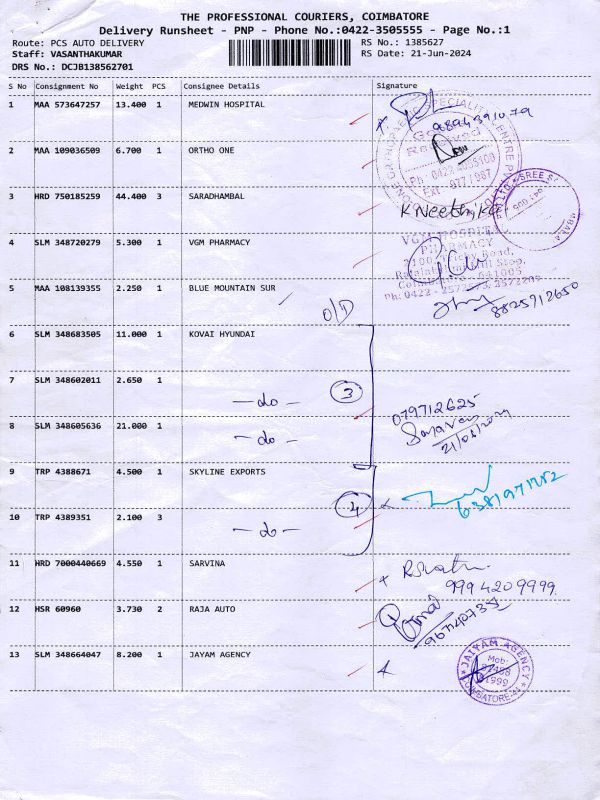 THE PROFESSIONAL COURIERS, COIMBATORE
Delivery Runsheet - PNP - Phone No.:0422-3505555 - Page No.:1
Route: PCS AUTO DELIVERY
RS No.: 1385627
Staff: VASANTHAKUMAR
RS Date: 21-Jun-2024
DRS No.: DCJB138562701
S No Consignment No Weight PCS Consignee Details Signature
1 MAA 573647257 13.400 1 MEDWIN HOSPITAL
9894391079
2 MAA 109036509 6.700 1 ORTHO ONE
3 HRD 750185259 44.400 3 SARADHAMBAL
K Neethika
4 SLM 348720279 5.300 1 VGM PHARMACY
VGM HOSPITAL
PHARMACY
5 MAA 108139355 2.250 1 BLUE MOUNTAIN SUR
O/D
8825912650
6 SLM 348683505 11.000 1 KOVAI HYUNDAI
7 SLM 348602011 2.650 1
-do- 3
079712625
8 SLM 348605636 21.000 1
-do-
9 TRP 4388671 4.500 1 SKYLINE EXPORTS
4
10 TRP 4389351 2.100 3
-do-
11 HRD 7000440669 4.550 1 SARVINA
9994209999
12 HSR 60960 3.730 2 RAJA AUTO
13 SLM 348664047 8.200 1 JAYAM AGENCY
JAIYAM AGENCY
Mob:
COIMBATORE-44